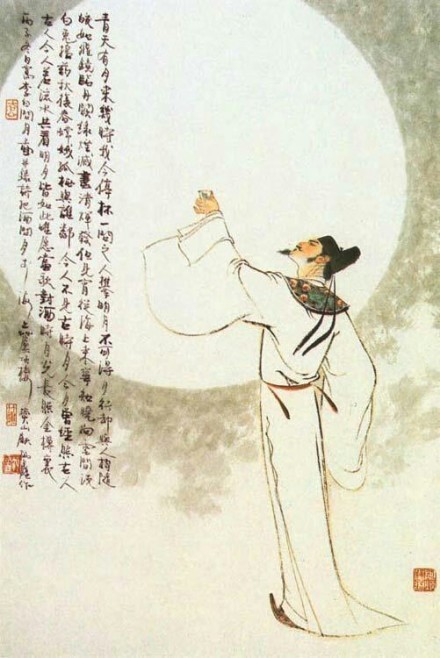 青天有月來幾時我今停杯一問之人攀明月不可得月行却與人相隨
皎如飛鏡臨丹闕綠煙滅盡清輝發但見宵從海上來寧知曉向雲間没
白兔搗藥秋復春嫦娥孤棲與誰鄰今人不見古時月今月曾經照古人
古人今人若流水共看明月皆如此唯願當歌對酒時月光長照金樽裏
李白問月圖并錄詩把酒問月于海上